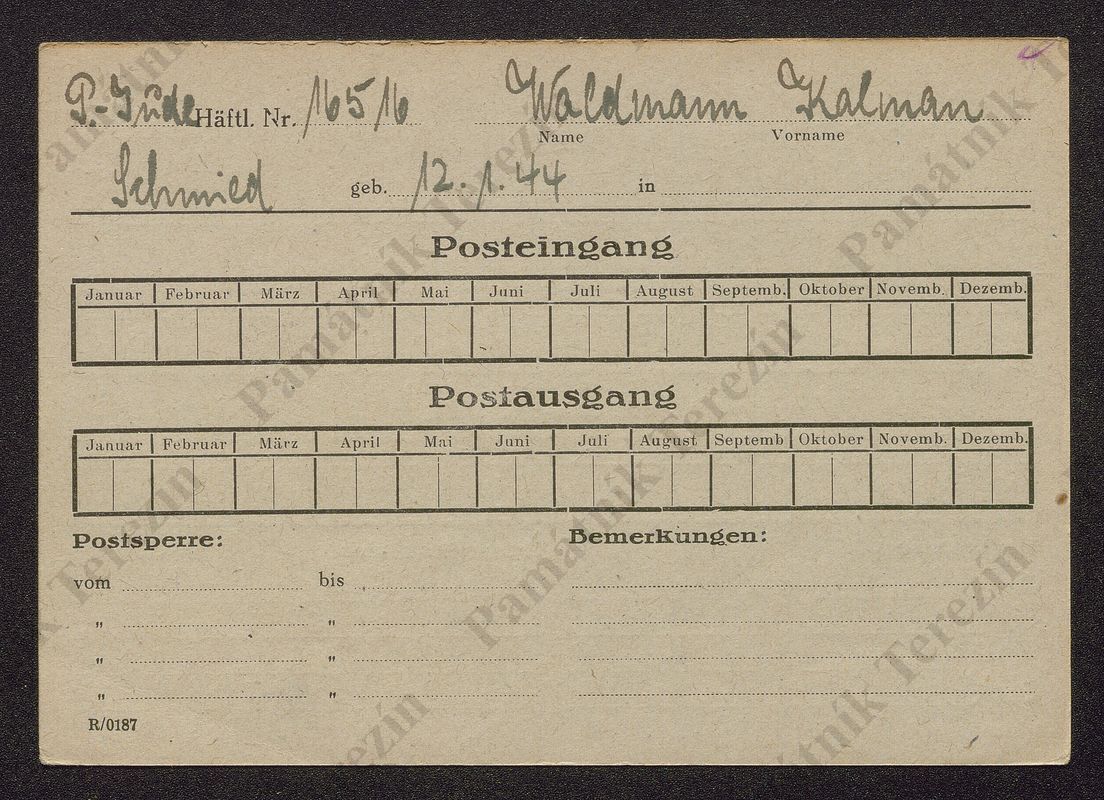 P.-Jude Häftl. Nr. 16516 Waldmann Kalman
Name Vorname
Schmied geb. 12.1.44 in
Posteingang
Januar Februar März April Mai Juni Juli August Septemb. Oktober Novemb. Dezemb.
Postausgang
Januar Februar März April Mai Juni Juli August Septemb Oktober Novemb. Dezemb.
Postsperre: Bemerkungen:
vom bis
" "
" "
" "
R/0187
Památník Terezín